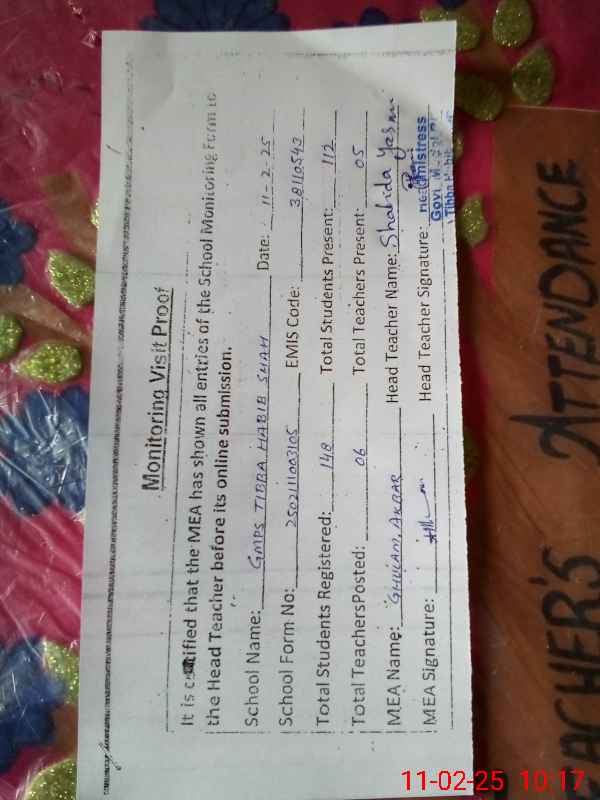 Monitoring Visit Proof
It is certified that the MEA has shown all entries of the School Monitoring Form to
the Head Teacher before its online submission.
School Name: GMPS TIBBA HABIB SHAH Date: 11-2-25
School Form No: 2502111003105 EMIS Code: 38110543
Total Students Registered: 148 Total Students Present: 112
Total TeachersPosted: 06 Total Teachers Present: 05
MEA Name: GHULAM AKBAR Head Teacher Name: Shahida Yasmi
MEA Signature: Head Teacher Signature:
Headmistress
Govt. M.
Tibba Habib
EACHER'S ATTENDANCE
11-02-25 10:17